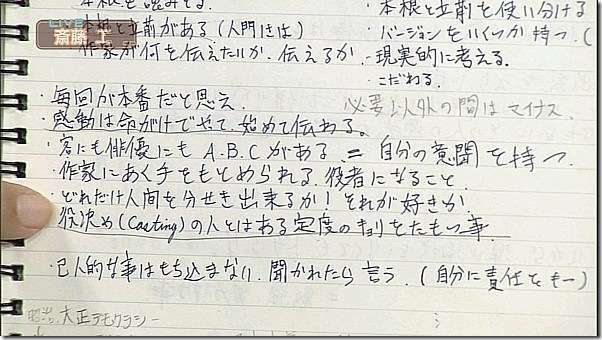 本根と立前を使い分ける
本根と立前がある(人間には)
・バージョンをいくつか持つ.(
作家が何を伝えたいか、伝えるか
・現実的に考える.
・こだわる.
LIVE
斎藤 工
・毎回が本番だと思え.
必要以外の間はマイナス.
・感動は命がけでやって、始めて伝わる。
・客にも俳優にも A.B.Cがある. = 自分の意聞を持つ.
・作家にあく手をもとめられる.役者になること.
・どれだけ人間を分せき出来るか! それが好きか.
役決め(Casting)の人とはある定度のキョリをたもつ事.
・己人的な事はもち込まない.聞かれたら言う.(自分に責任をもつ)
大正デモクラシー